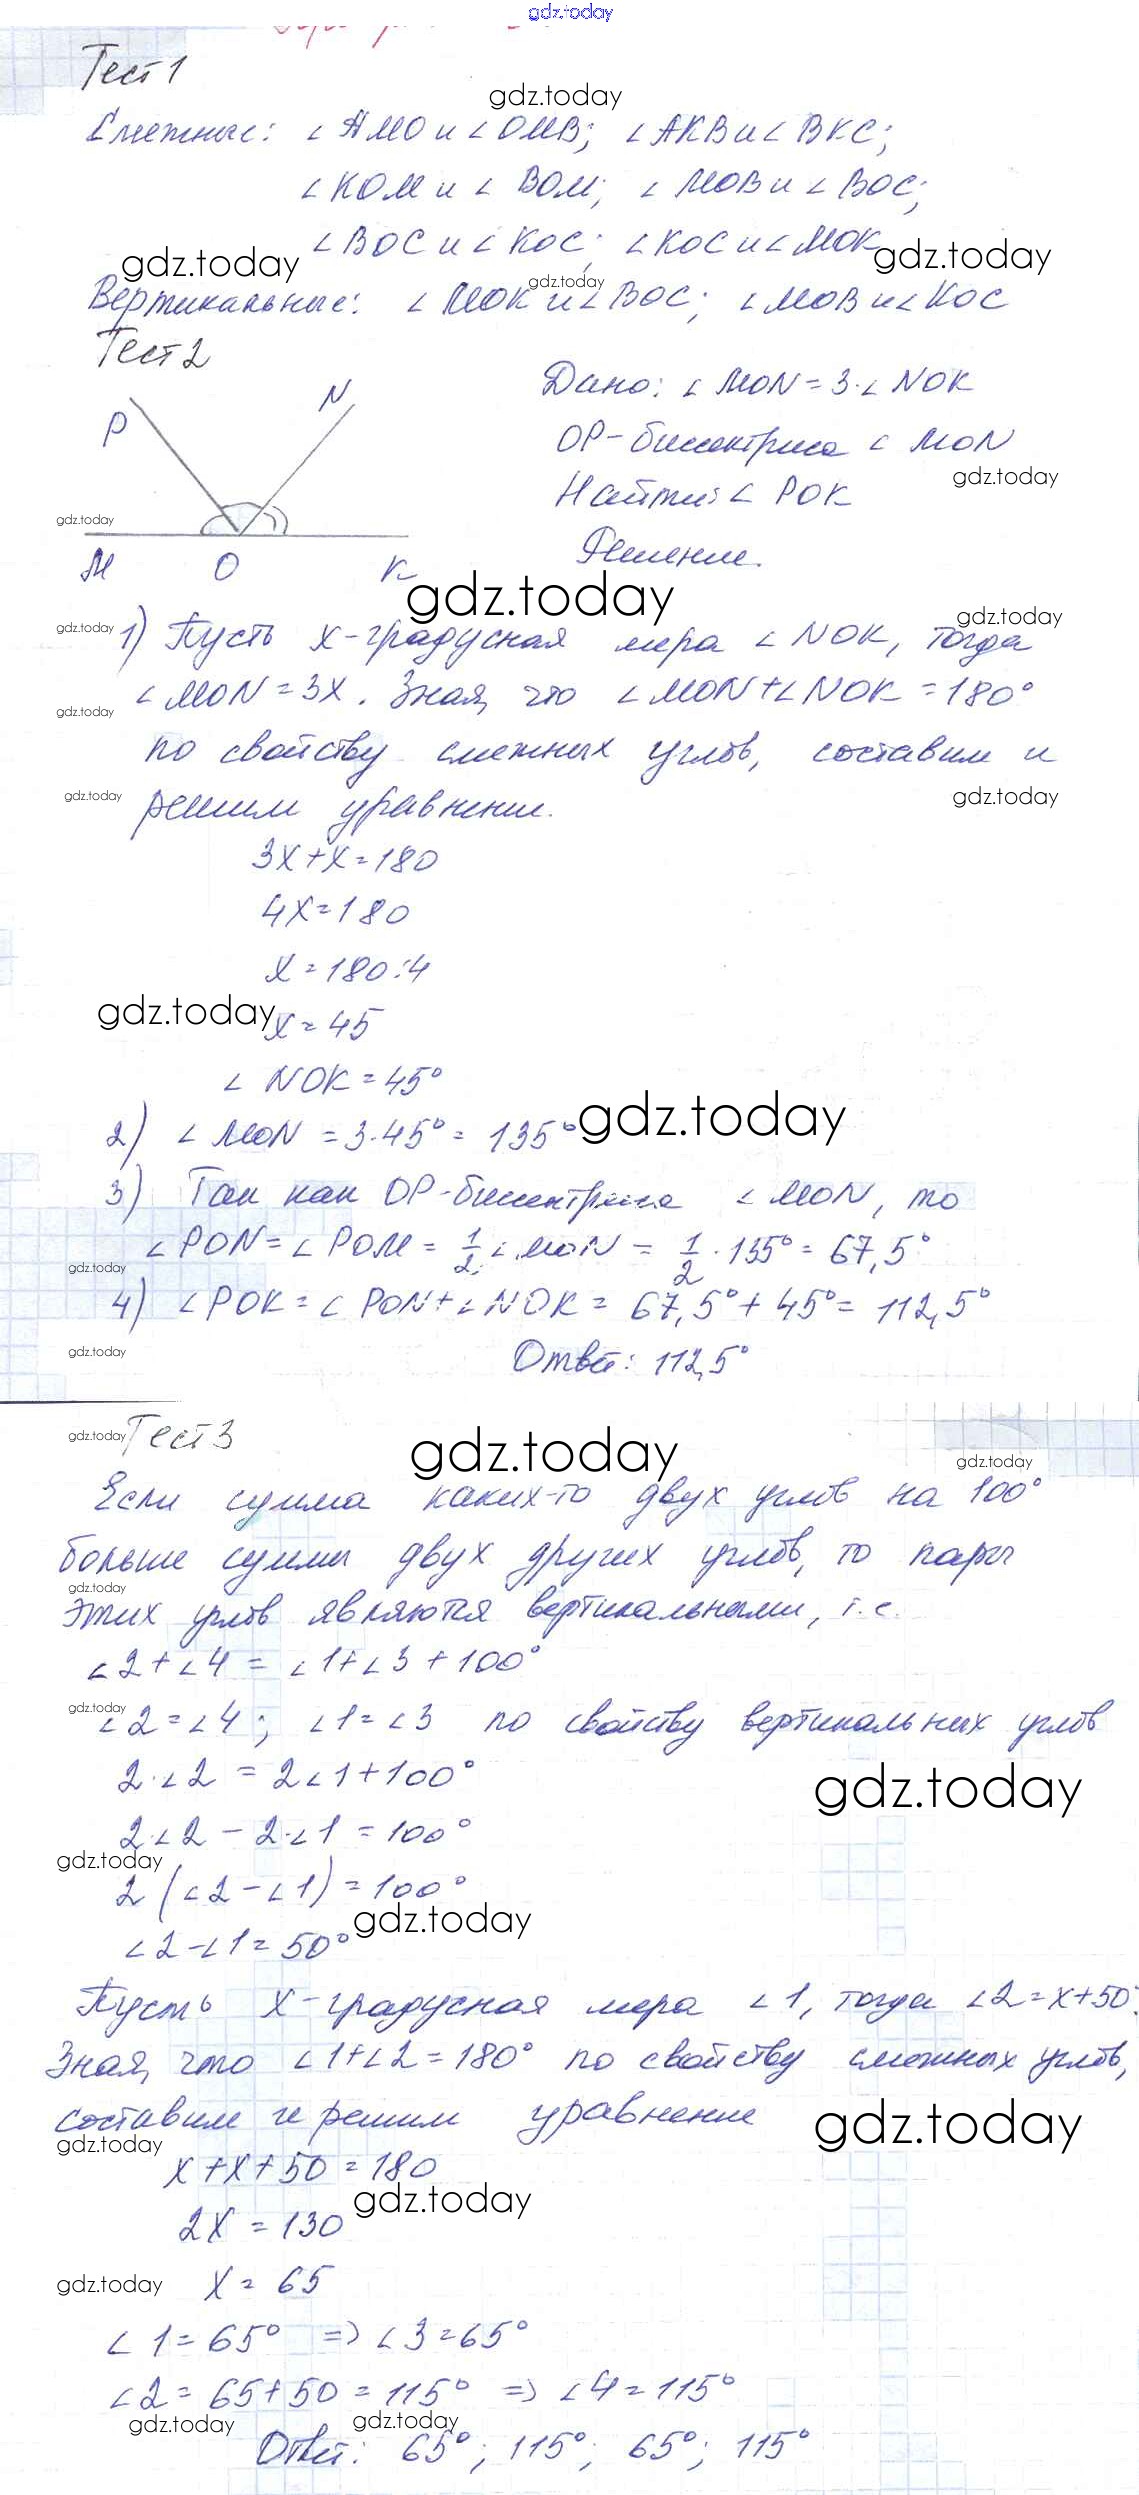 gdz.today
Тест 1
gdz.today
Смежные: ∠AMO и ∠OMB; ∠AKB и ∠BKC;
∠KOM и ∠BOM; ∠MOB и ∠BOC;
∠BOC и ∠KOC; ∠KOC и ∠MOK
gdz.today gdz.today
gdz.today
Вертикальные: ∠MOK и ∠BOC; ∠MOB и ∠KOC
Тест 2
P N
M O K
Дано: ∠MON = 3·∠NOK
OP - биссектриса ∠MON
gdz.today
Найти: ∠POK
gdz.today
Решение.
gdz.today
gdz.today gdz.today
1) Пусть x - градусная мера ∠NOK, тогда
∠MON = 3x. Зная, что ∠MON + ∠NOK = 180°
gdz.today
по свойству смежных углов, составим и
gdz.today gdz.today
решим уравнение.
3x + x = 180
4x = 180
x = 180:4
gdz.today
x = 45
∠NOK = 45°
gdz.today
2) ∠MON = 3·45° = 135°
3) Так как OP - биссектриса ∠MON, то
∠PON = ∠POM = 1/2 ∠MON = 1/2 · 135° = 67,5°
gdz.today
4) ∠POK = ∠PON + ∠NOK = 67,5° + 45° = 112,5°
gdz.today
Ответ: 112,5°
gdz.today
Тест 3
gdz.today gdz.today
Если сумма каких-то двух углов на 100°
больше суммы двух других углов, то пары
gdz.today
этих углов являются вертикальными, т.е.
∠2 + ∠4 = ∠1 + ∠3 + 100°
gdz.today
∠2 = ∠4; ∠1 = ∠3 по свойству вертикальных углов
2·∠2 = 2∠1 + 100°
gdz.today
2·∠2 - 2·∠1 = 100°
gdz.today
2(∠2 - ∠1) = 100°
gdz.today
∠2 - ∠1 = 50°
Пусть x - градусная мера ∠1, тогда ∠2 = x + 50°.
Зная, что ∠1 + ∠2 = 180° по свойству смежных углов,
составим и решим уравнение
gdz.today gdz.today
x + x + 50 = 180
gdz.today
2x = 130
gdz.today
x = 65
∠1 = 65° => ∠3 = 65°
∠2 = 65 + 50 = 115° => ∠4 = 115°
gdz.today gdz.today
Ответ: 65°; 115°; 65°; 115°